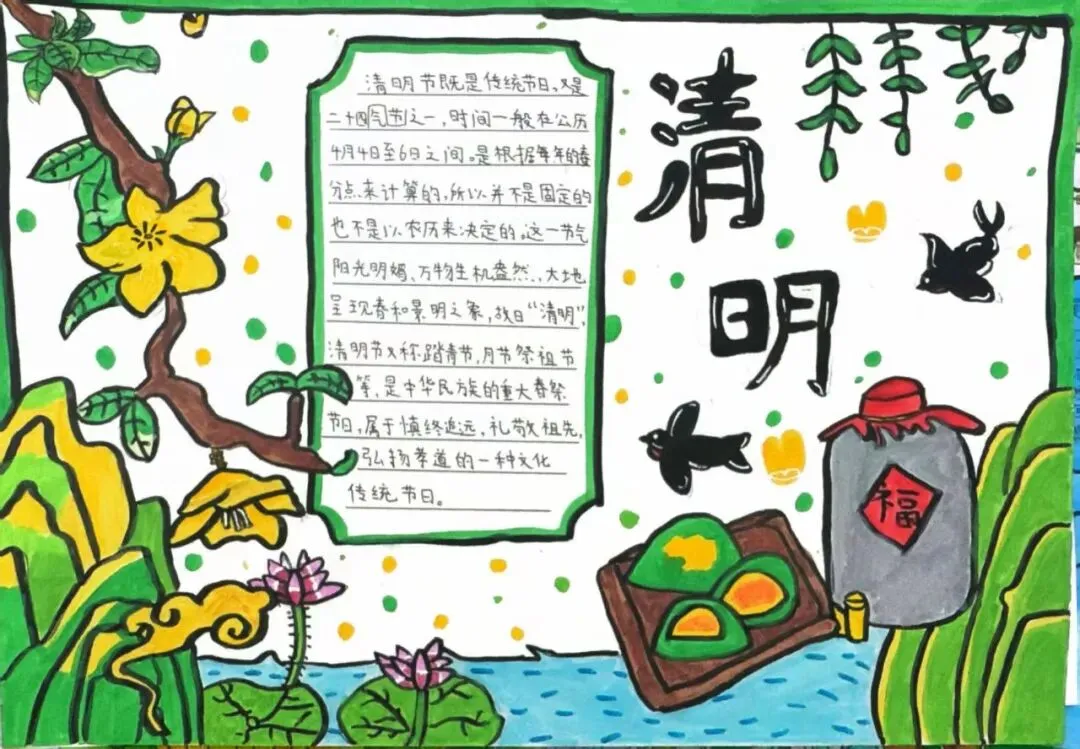 清明节既是传统节日,又是
二十四气节之一,时间一般在公历
4月4日至6日之间。是根据每年的春
分点来计算的,所以并不是固定的
也不是以农历来决定的。这一节气
阳光明媚、万物生机盎然、大地
呈现春和景明之象,故曰“清明”,
清明节又称踏青节,月节祭祖节
等,是中华民族的重大春祭
节日,属于慎终追远,礼敬祖先,
弘扬孝道的一种文化
传统节日。
清
明
福